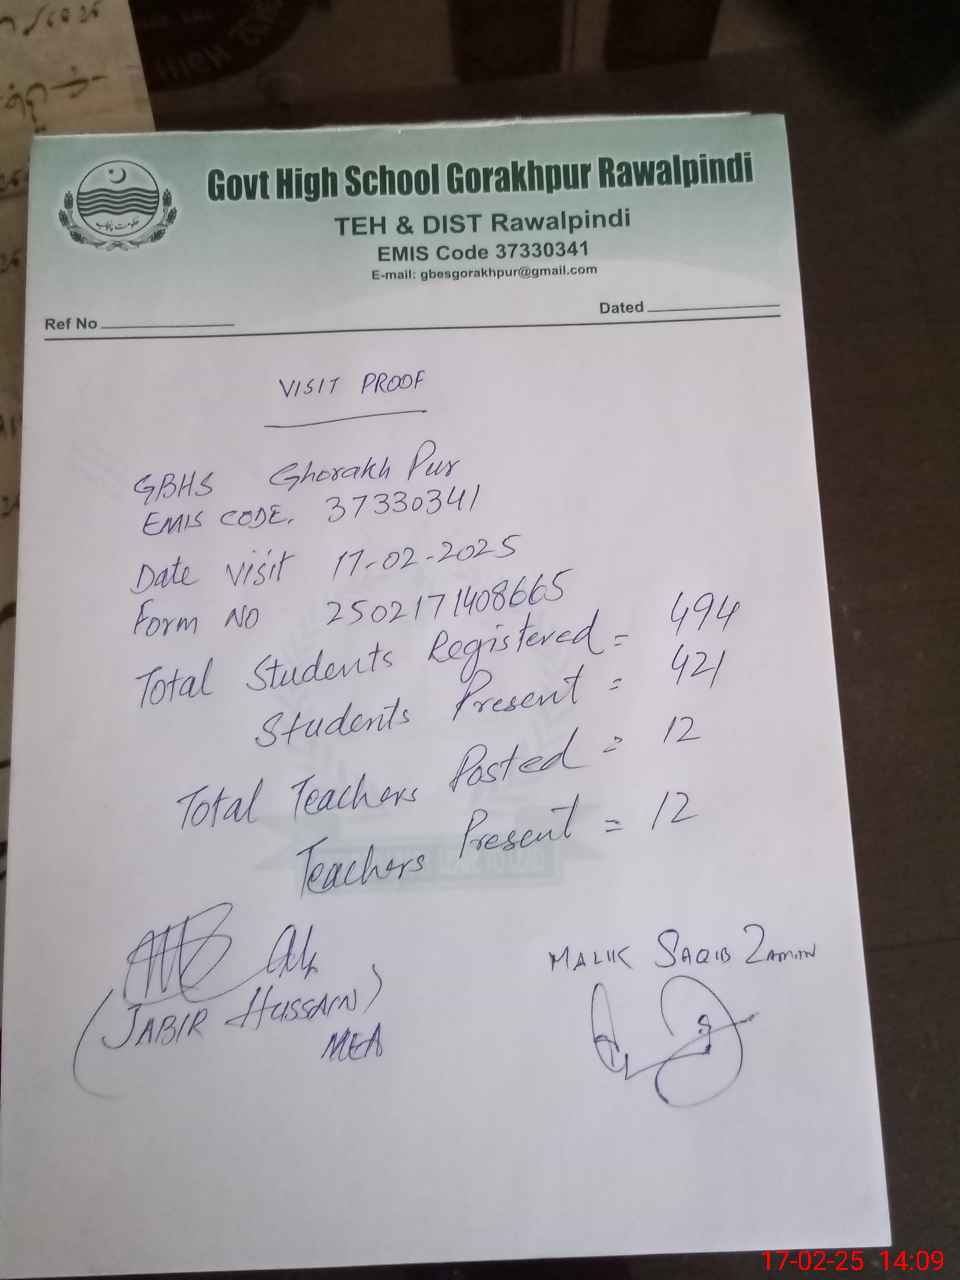 Govt High School Gorakhpur Rawalpindi
TEH & DIST Rawalpindi
EMIS Code 37330341
E-mail: gbesgorakhpur@gmail.com
Ref No
Dated
VISIT PROOF
GBHS Ghorakh Pur
EMIS CODE. 37330341
Date visit 17-02-2025
Form No 2502171408665
Total Students Registered = 494
Students Present = 421
Total Teachers Posted = 12
Teachers Present = 12
(JABIR HUSSAIN)
MEA
MALIK SAQIB ZAMAN
17-02-25 14:09